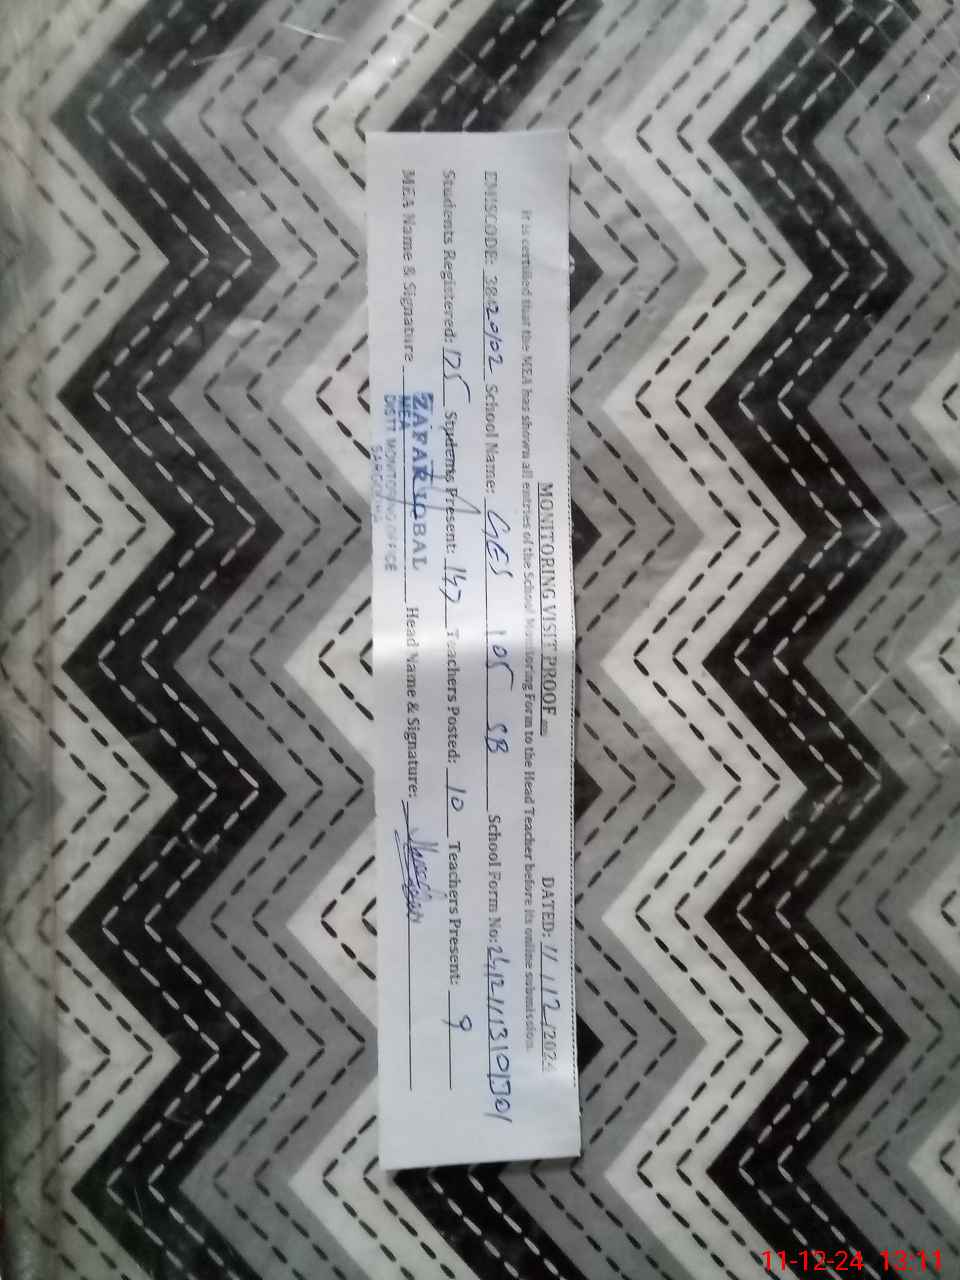 MONITORING VISIT PROOF DATED: 11/12/2024
It is certified that the MEA has shown all entries of the School Monitoring Form to the Head Teacher before its online submission.
EMISCODE: 38420102 School Name: GES 105 SB School Form No:
Students Registered: Students Present: 147 Teachers Posted: 10 Teachers Present: 9
MEA Name & Signature Head Name & Signature:
ZAFAR IQBAL
MEA
DISTT MONITORING OFFICE
SARGODHA
11-12-24 13:11